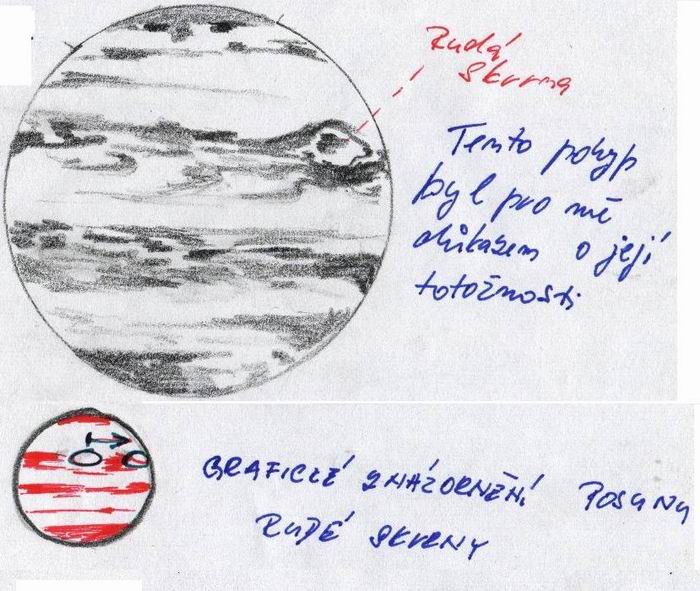 Rudá
skvrna
Tento pohyb
byl pro mě
důkazem o její
totožnosti
GRAFICKÉ ZNÁZORNĚNÍ POSUNU
RUDÉ SKVRNY